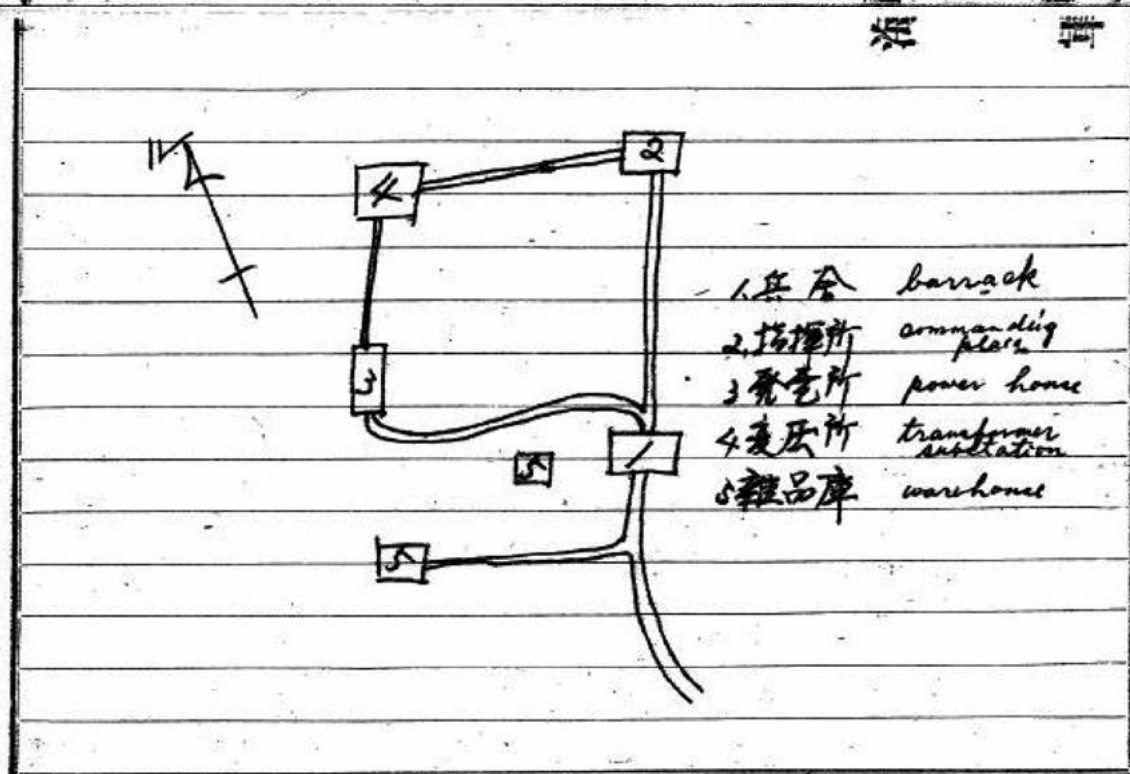 海 軍
N
2
4
3
1
5
5
1.兵舍 barrack
2.指揮所 commanding
place
3 発電所 power house
4 変圧所 transformer
substation
5 雜品庫 warehouse